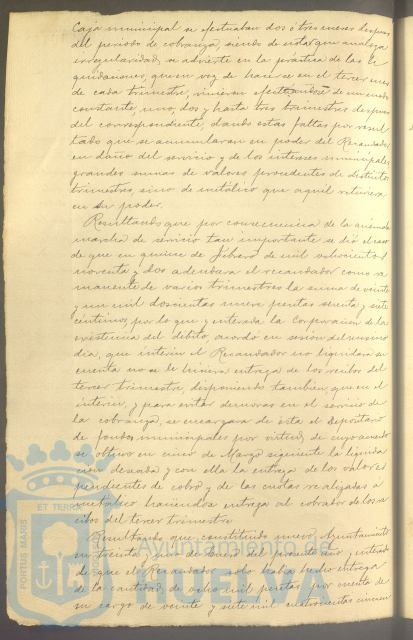 Caja municipal se efectuaban dos ó tres meses despues
del periodo de cobranza, siendo de notar que analoga
irregularidad, se advierte en la práctica de las li
quidaciones, que en vez de hacerse en el tercer mes
de cada trimestre, vinieron efectuandose de un modo
constante, uno, dos y hasta tres trimestres despues
del correspondiente, dando estas faltas por resul
tado que se acumularan en poder del Recaudador
en daño del servicio y de los intereses municipales
grandes sumas de valores procedentes de distintos
trimestres, sino de metálico que aquél retuviera
en su poder.
Resultando que por consecuencia de la
marcha de servicio tan importante se dió el caso
de que en quince de Febrero de mil ochocientos
noventa y dos adeudara el recaudador como re
manente de varios trimestres la suma de veinte
y un mil doscientas nueve pesetas y siete
céntimos, por lo que enterada la Corporacion de la
existencia del débito, acordó en sesión del mismo
dia, que interin el Recaudador no liquidara su
cuenta no se le hiciera entrega de los recibos del
tercer trimestre, disponiendo tambien que en el
interin, y para evitar demoras en el servicio de
la cobranza, se encargara de ésta el Depositario
de fondos municipales por virtud de cuyo acuerdo
se obtuvo en cinco de Marzo siguiente la liquida
cion deseada y con ella la entrega de los valores
pendientes de cobro, y de las cuotas realizadas á
metálico haciendose entrega al cobrador de los re
cibos del tercer trimestre
Resultando que constituido nuevo Ayuntamiento
en de Enero del presente año, y enterado
de que el Recaudador solo habia hecho entrega
de la cantidad de ocho mil pesetas por cuenta de
su cargo de veinte y siete mil cuatrocientas cincuen
PORTUS MARIS
ET TERRÆ
Ayuntamiento de
HUELVA